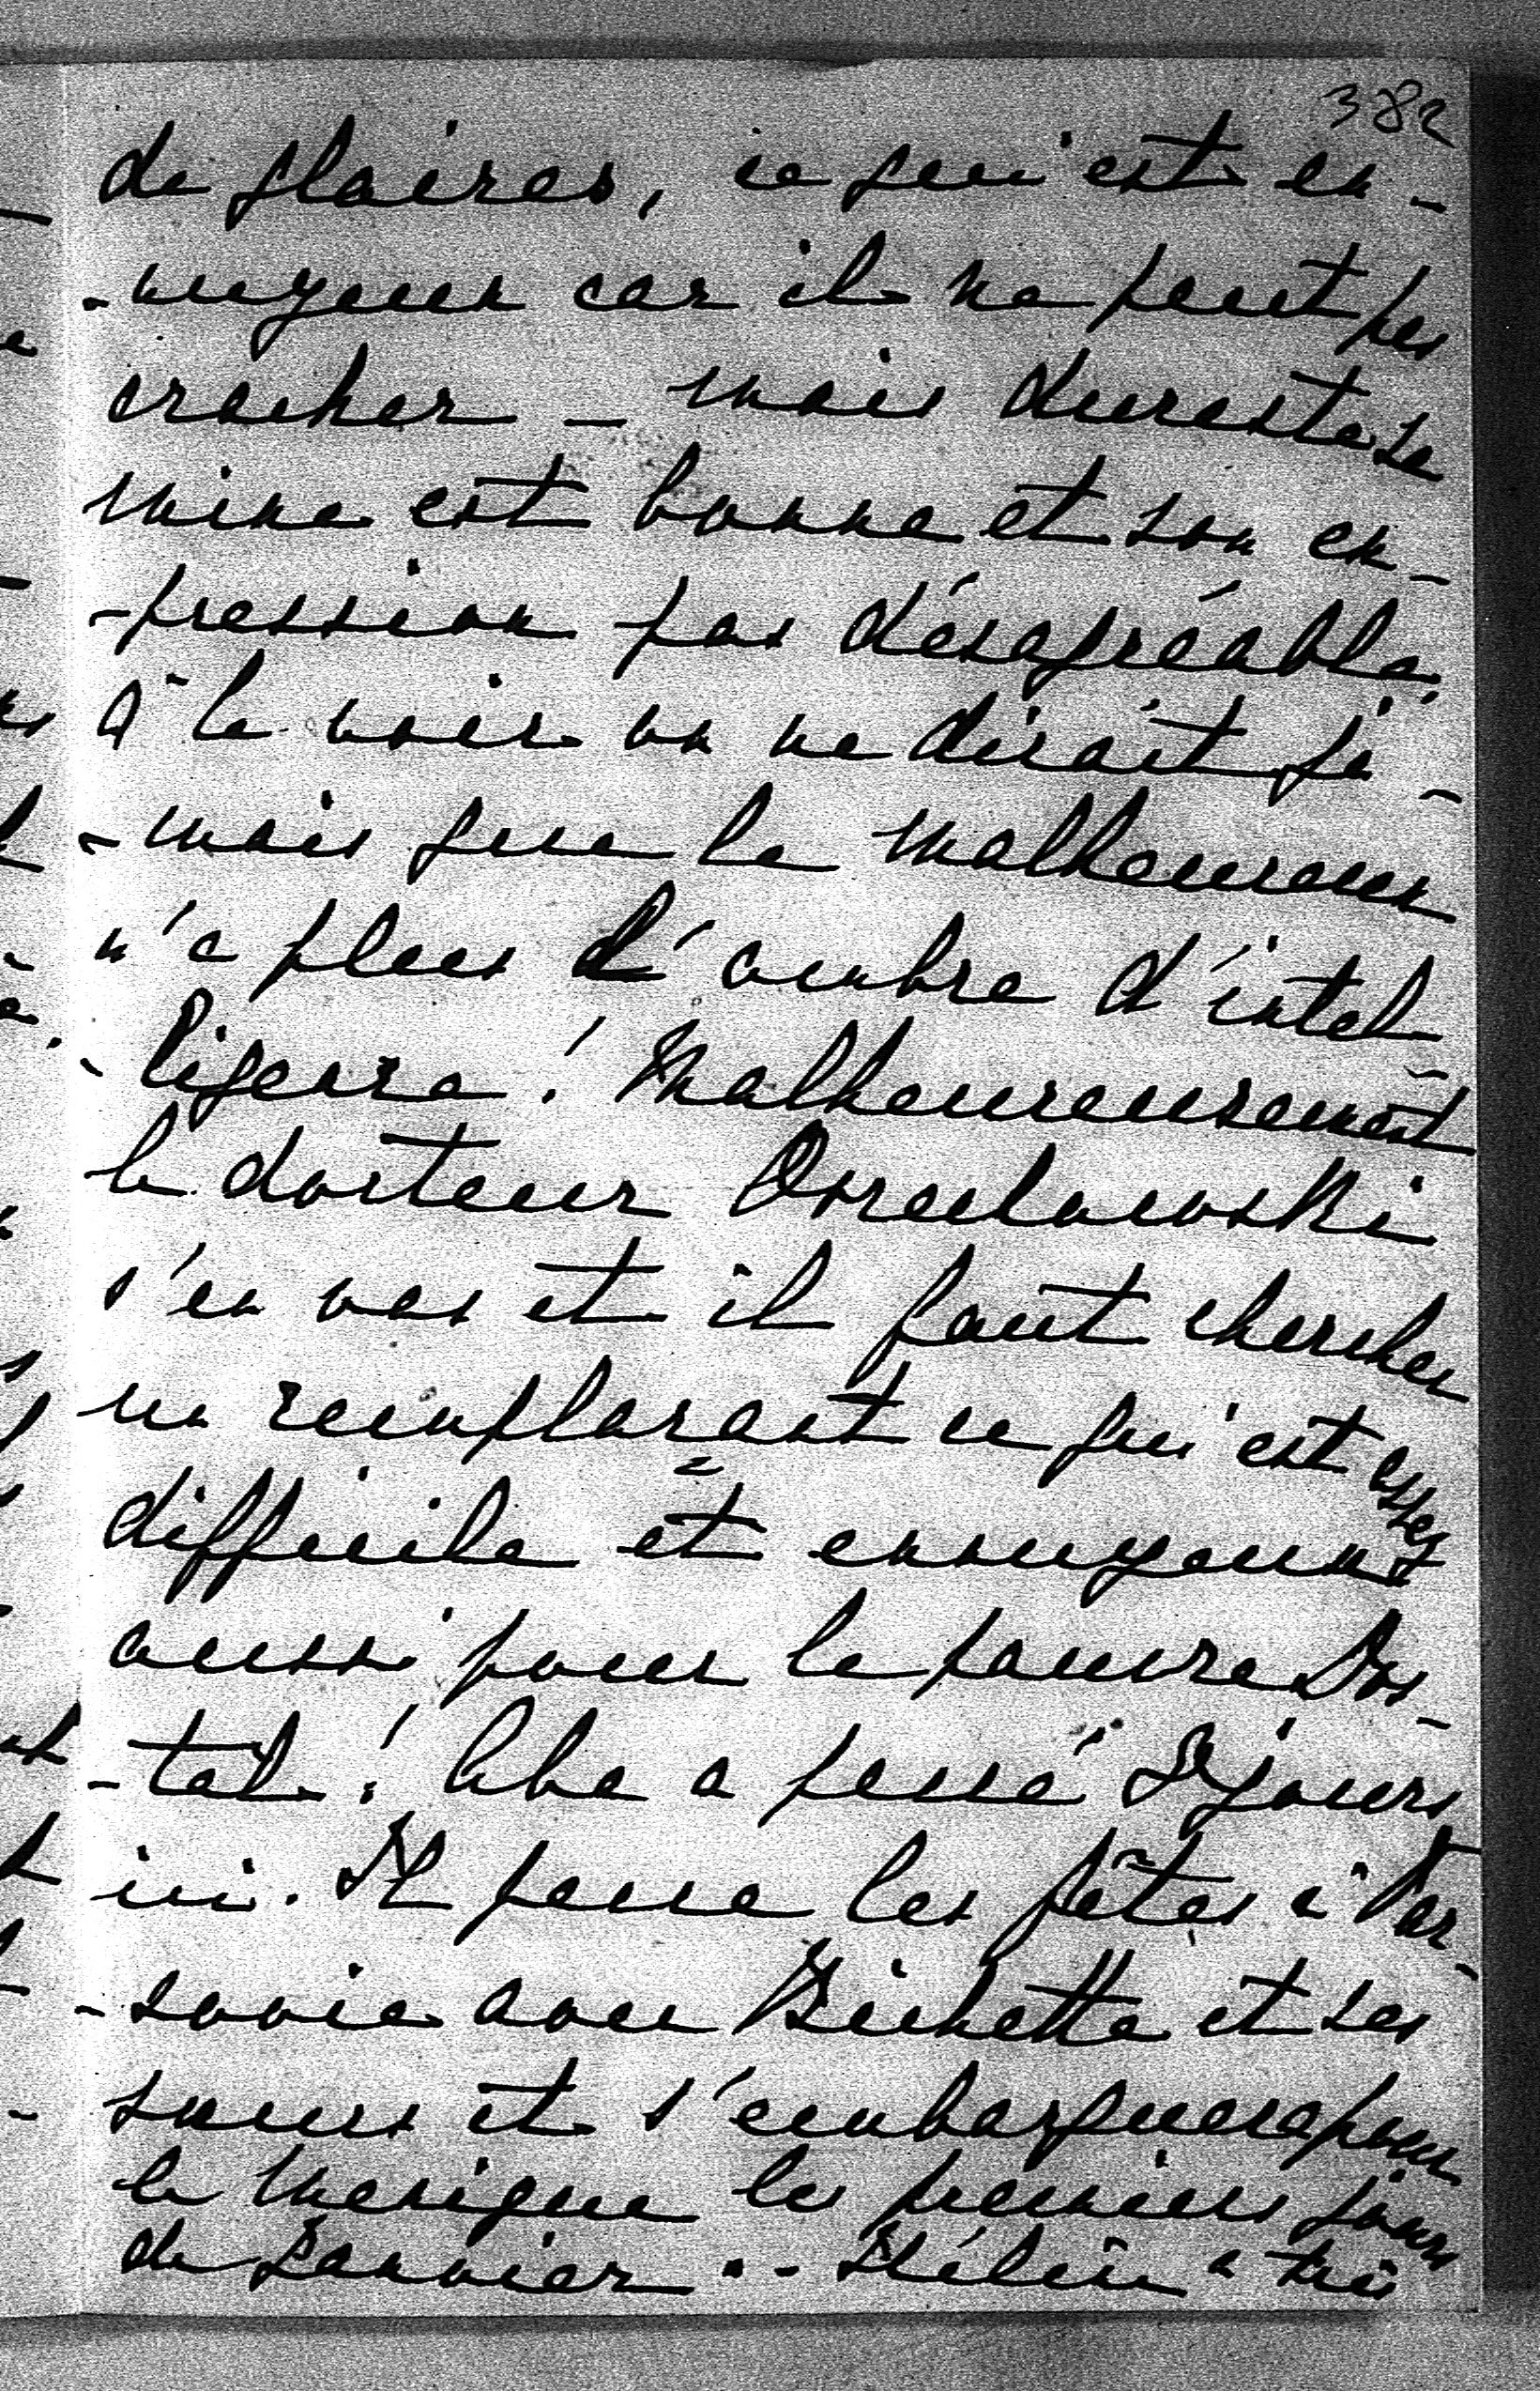 382
de glaires, ce qui est en-
-nuyeux car il ne peut pas
cracher - mais du reste sa
mine est bonne et son ex-
-pression pas désagréable.
A le voir on ne dirait ja-
-mais que le malheureux
n'a plus d'ombre d'intel-
-ligence! Malheureusement
le docteur
s'en vas et il faut chercher
un remplaçant ce qui est assez
difficile et ennuyeux
aussi pour le pauvre Dos-
-tal! Abe a passé 2 jours
ici. Il passe les fêtes à Var-
-sovie avec Bichette et ses
sœurs et s'embarquera pour
le Mexique les premiers jours
de Janvier. - a